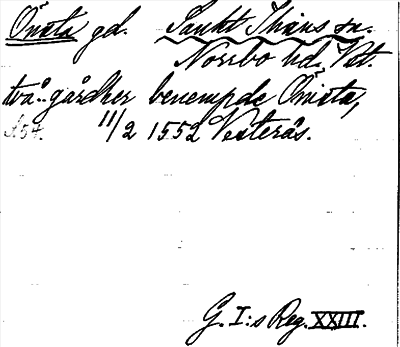 Önsta gd. Sankt Ilians sn.
Norrbo hd, Vst.
två gårdher benempde Önista,
s. 54. 11/2 1552 Vesterås.
G. I:s Reg. XXIII.